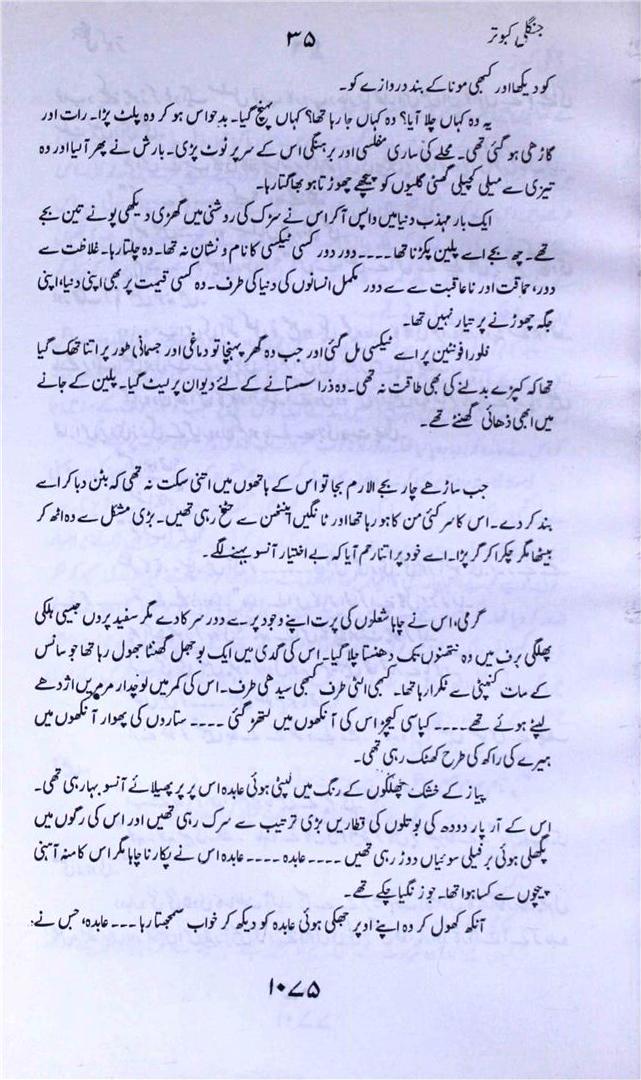 جنگلی کبوتر
۳۵
کو دیکھا اور کبھی مونا کے بند دروازے کو۔
یہ وہ کہاں چلا آیا؟ وہ کہاں جا رہا تھا؟ کہاں پہنچ گیا۔ بدحواس ہو کر وہ پلٹ پڑا۔ رات اور
گاڑھی ہو گئی تھی۔ محلے کی ساری مفلسی اور برہنگی اس کے سر پر ٹوٹ پڑی۔ بارش نے پھر آلیا اور وہ
تیزی سے میلی کچیلی گھنی گلیوں کو پیچھے چھوڑتا ہو بھاگتا رہا۔
ایک بار مہذب دنیا میں واپس آ کر اس نے سڑک کی روشنی میں گھڑی دیکھی پونے تین بجے
تھے۔ چھ بجے اے پلین پکڑنا تھا ۔۔۔۔ دور دور کسی ٹیکسی کا نام و نشان نہ تھا۔ وہ چلتا رہا۔ غلاظت سے
دور، حماقت اور نا عاقبت سے سے دور مکمل انسانوں کی دنیا کی طرف۔ وہ کسی قیمت پر بھی اپنی دنیا، اپنی
جگہ چھوڑنے پر تیار نہیں تھا۔
فلورا فونٹین پر اے ٹیکسی مل گئی اور جب وہ گھر پہنچا تو دماغی اور جسمانی طور پر اتنا تھک گیا
تھا کہ کپڑے بدلنے کی بھی طاقت نہ تھی۔ وہ ذرا سستانے کے لئے دیوان پر لیٹ گیا۔ پلین کے جانے
میں ابھی ڈھائی گھنٹے تھے۔
جب ساڑھے چار بجے الارم بجا تو اس کے ہاتھوں میں اتنی سکت نہ تھی کہ بٹن دبا کر اے
بند کر دے۔ اس کا سر کئی من کا ہو رہا تھا اور ٹانگیں اینٹھن سے چٹخ رہی تھیں۔ بڑی مشکل سے وہ اٹھ کر
بیٹھا مگر چکرا کر گر پڑا۔ اے خود پر اتنا رحم آیا کہ بے اختیار آنسو بہنے لگے۔
گرمی، اس نے چاہا شعلوں کی پرت اپنے وجود پر سے دور سرکا دے مگر سفید پروں جیسی ہلکی
پھلکی برف میں وہ نتھنوں تک دھنستا چلا گیا۔ اس کی گدی میں ایک بوجھل گھنٹا جھول رہا تھا جو سانس
کے سات کنپٹی سے ٹکرا رہا تھا۔ کبھی الٹی طرف کبھی سیدھی طرف۔ اس کی کمر میں لوچدار مرمریں اژدھے
لپٹے ہوئے تھے ۔۔۔۔ کپاسی کیچڑ اس کی آنکھوں میں لتھڑ گئی ۔۔۔۔ ستاروں کی پھوار آنکھوں میں
ہیرے کی راکھ کی طرح کھٹک رہی تھی۔
پیاز کے خشک چھلکوں کے رنگ میں لپٹی ہوئی عابدہ اس پر پر پھیلائے آنسو بہا رہی تھی۔
اس کے آر پار دودھ کی بوتلوں کی قطاریں بڑی ترتیب سے سرک رہی تھیں اور اس کی رگوں میں
پگھلی ہوئی برفیلی سوئیاں دوڑ رہی تھیں ۔۔۔۔ عابدہ ۔۔۔۔ عابدہ اس نے پکارنا چاہا مگر اس کا منہ آہنی
پیچوں سے کسا ہوا تھا۔ جو زنگیا چکے تھے۔
آنکھ کھول کر وہ اپنے اوپر جھکی ہوئی عابدہ کو دیکھ کر خواب سمجھتا رہا ۔۔۔ عابدہ، جس نے
۱۰۷۵